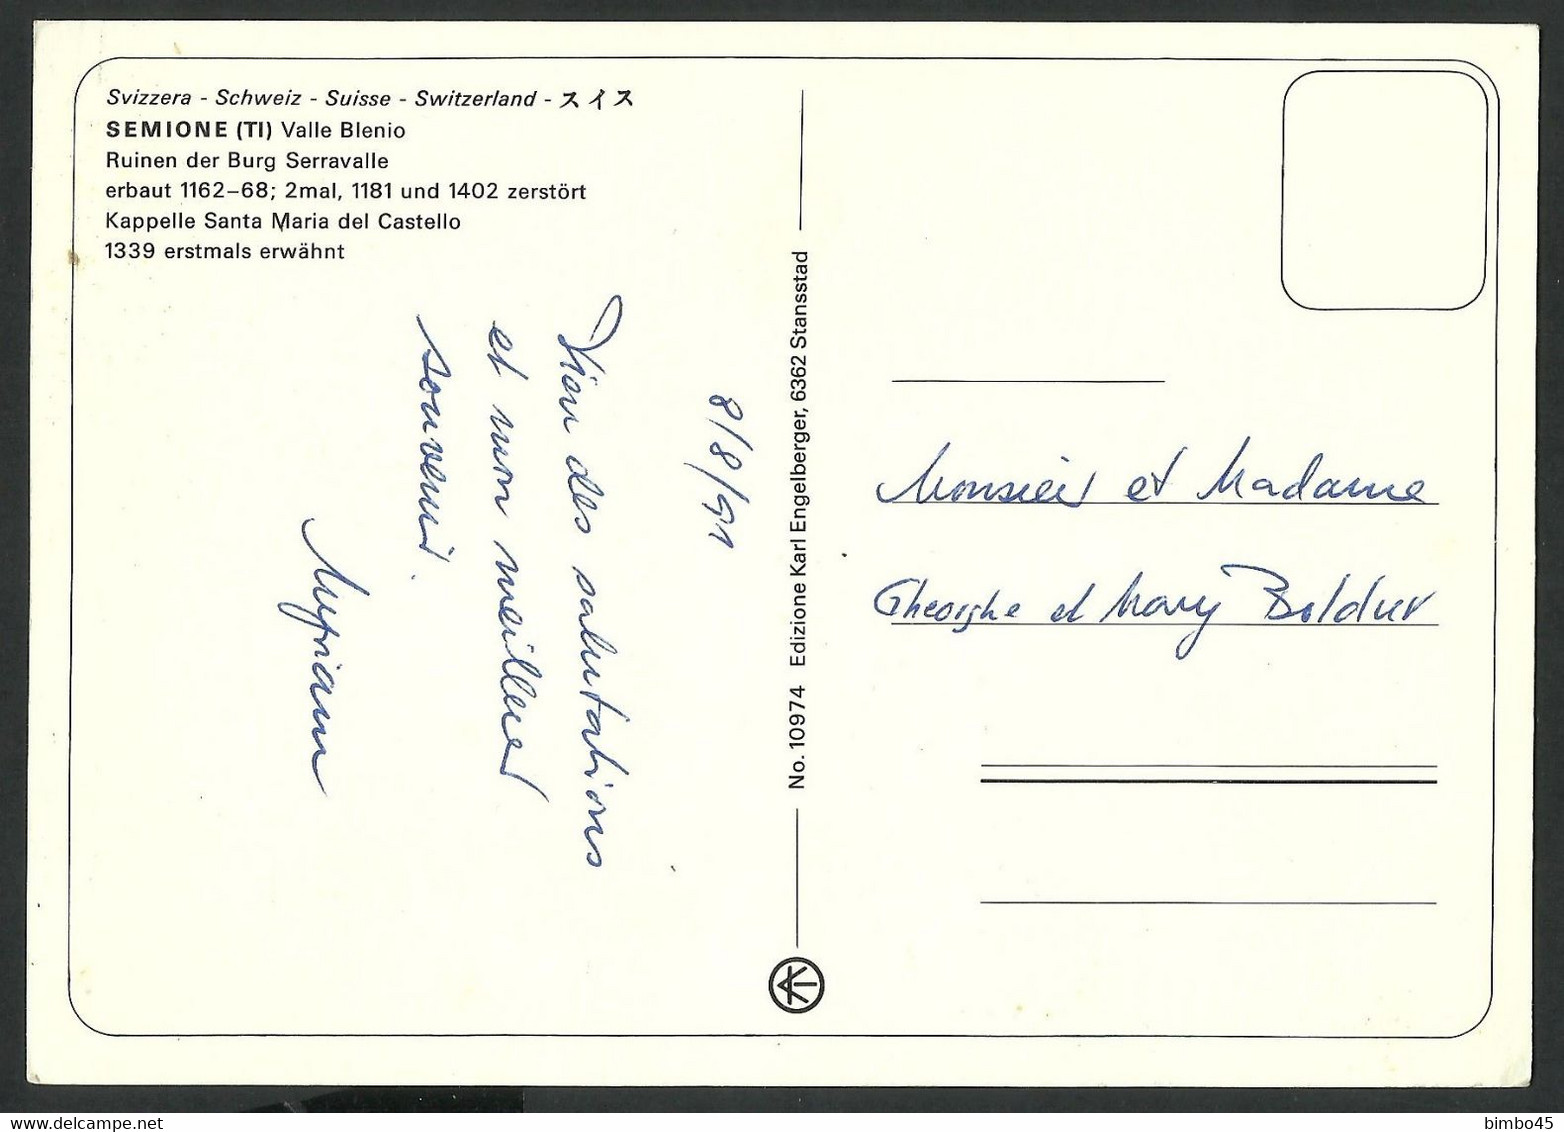 Svizzera - Schweiz - Suisse - Switzerland - スイス
SEMIONE (TI) Valle Blenio
Ruinen der Burg Serravalle
erbaut 1162–68; 2mal, 1181 und 1402 zerstört
Kappelle Santa Maria del Castello
1339 erstmals erwähnt
8/8/91
des salutations
et mon meilleur
souvenir.
Myriam
No. 10974 Edizione Karl Engelberger, 6362 Stansstad
Monsieur et Madame
Gheorghe et Mary Boldur
bimbo45